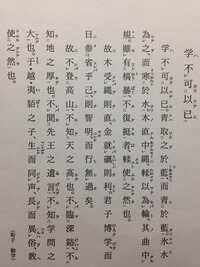 学不可以已
学不可以已。青取之於藍、而青於藍、氷水
為之、而寒於水。木直中縄、輮以為輪、其曲中
規。雖有槁暴、不復挺者、輮使之然也。
故木受縄則直、金就礪則利、君子博学而
日参省乎己、則智明而行無過矣。
故不登高山、不知天之高也。不臨深谿、不
知地之厚也。不聞先王之遺言、不知学問之
大也。于越夷貉之子、生而同声、長而異俗、教
使之然也。
(荀子 勧学)